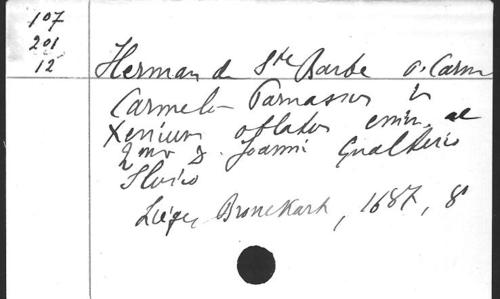 107
201
12
Herman de Ste Barbe o. Carm
Carmelo Parnassus in
Xenium oblatus emin. ac
D. Joanni Gualterio
Slusio
Liége, Bronckart, 1687, 8°